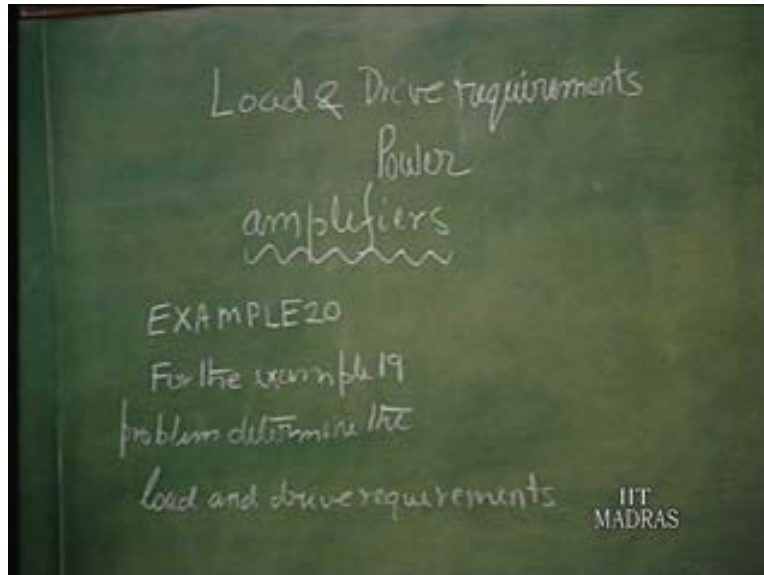 Load & Drive requirements
Power
amplifiers
EXAMPLE 20
For the example 19
problem determine the
load and drive requirements
IIT
MADRAS